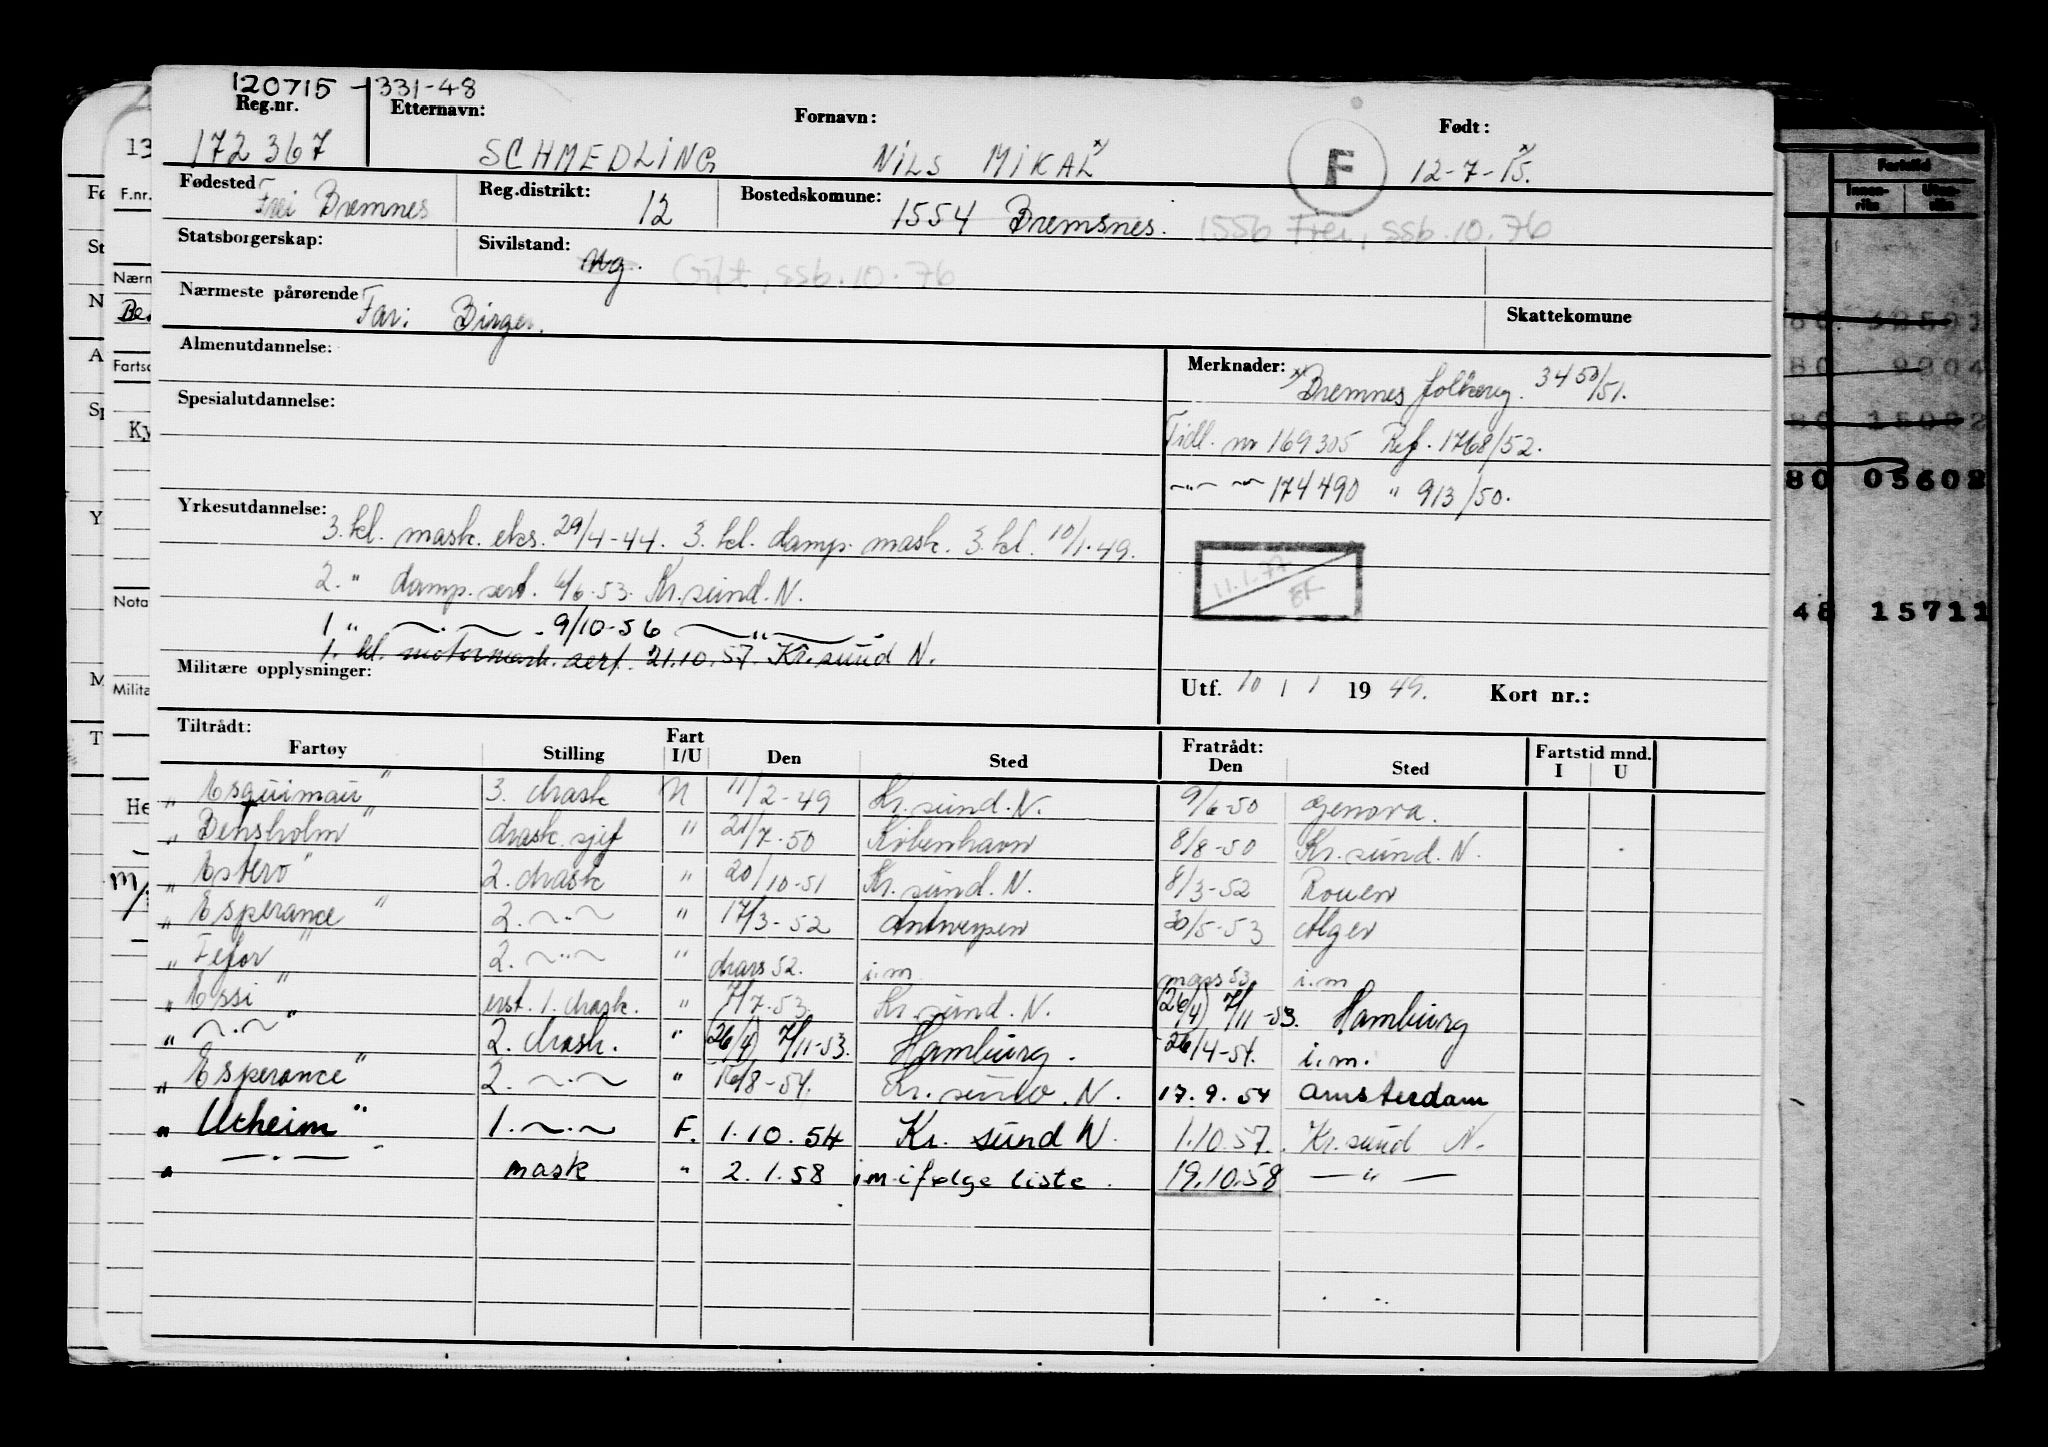 120715 - 331-48
Reg.nr. Etternavn: Fornavn: Født:
172367 SCHMEDLING NILS MIKAL x F 12-7-15. x
Fødested Frei Bremnes Reg.distrikt: 12 Bostedskomune: 1554 Bremsnes. 1556 Frei, ssb.10.76
Statsborgerskap: Sivilstand: Ug. Gift, ssb.10.76
Nærmeste pårørende Far: Birger. Skattekomune
Almenutdannelse: Merknader: x Bremnes folkereg. 3450/51.
Spesialutdannelse: Tidl. nr 169305 Ref. 1768/52.
—"— — 174490 " 913/50.
Yrkesutdannelse: 3.kl. mask. eks. 29/4-44. 3.kl. damp. mask. 3.kl. 10/1.49.
11.1.77
2. " damp.sert. 6/6-53. Kr.sund.N.
1 " —.— - 9/10-56 —"—.
1. kl. motormask. sert. 21.10.57. Kr.sund N.
Militære opplysninger: Utf. 10 / 1 1949. Kort nr.:
Tiltrådt: Fratrådt: Fartstid mnd.
Fartøy Stilling Fart I/U Den Sted Den Sted I U
"Esquimau" 3. Mask N 11/2-49 Kr.sund.N. 9/6-50 Genova.
"Densholm" Mask.sjef " 21/7-50 København 8/8-50 Kr.sund.N.
"Estero" 2. Mask " 20/10-51 Kr.sund.N. 8/3-52 Rouen
"Esperance" 2. —.— " 17/3-52 Antwerpen 30/5-53 Alger
"Fefor" 2. —"— " Mars 52. i.m mars 53 i.m
"Essi" erst. 1. Mask. " 7/7-53. Kr.sund.N. (26/4) 7/11-53. Hamburg
" —.— " 2. Mask. " (26/4) 7/11-53. Hamburg. 26/4-54. i.m.
"Esperance" 2. —.— " 16/8-54. Kr.sund.N. 17.9.54 Amsterdam
"Utheim" 1. —.— F. 1.10.54 Kr. sund N. 1.10.57. Kr.sund N.
" —.— mask " 2.1.58 i m ifølge liste. 19.10.58 —"—
13
F.nr.
Nærm
Fartso
Ky
Nota
Milita
He
m/
Fartstid
Innen-riks Uten-riks
80 05602
48 15711